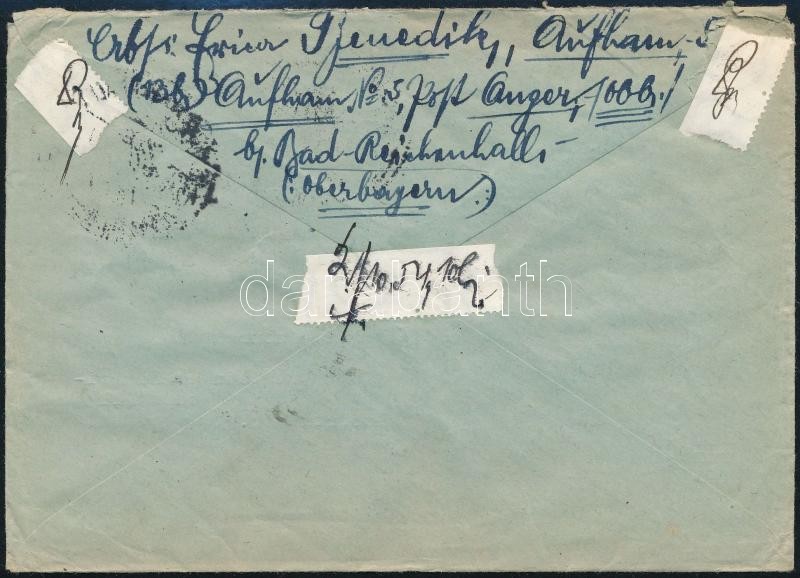 Abs: Erica Benedik, Aufham, 5
(13b) Aufham No 5, Post Anger, /OOb./
b/ Bad-Reichenhall,
(:Oberbayern:)
2/10.54,
darabanth